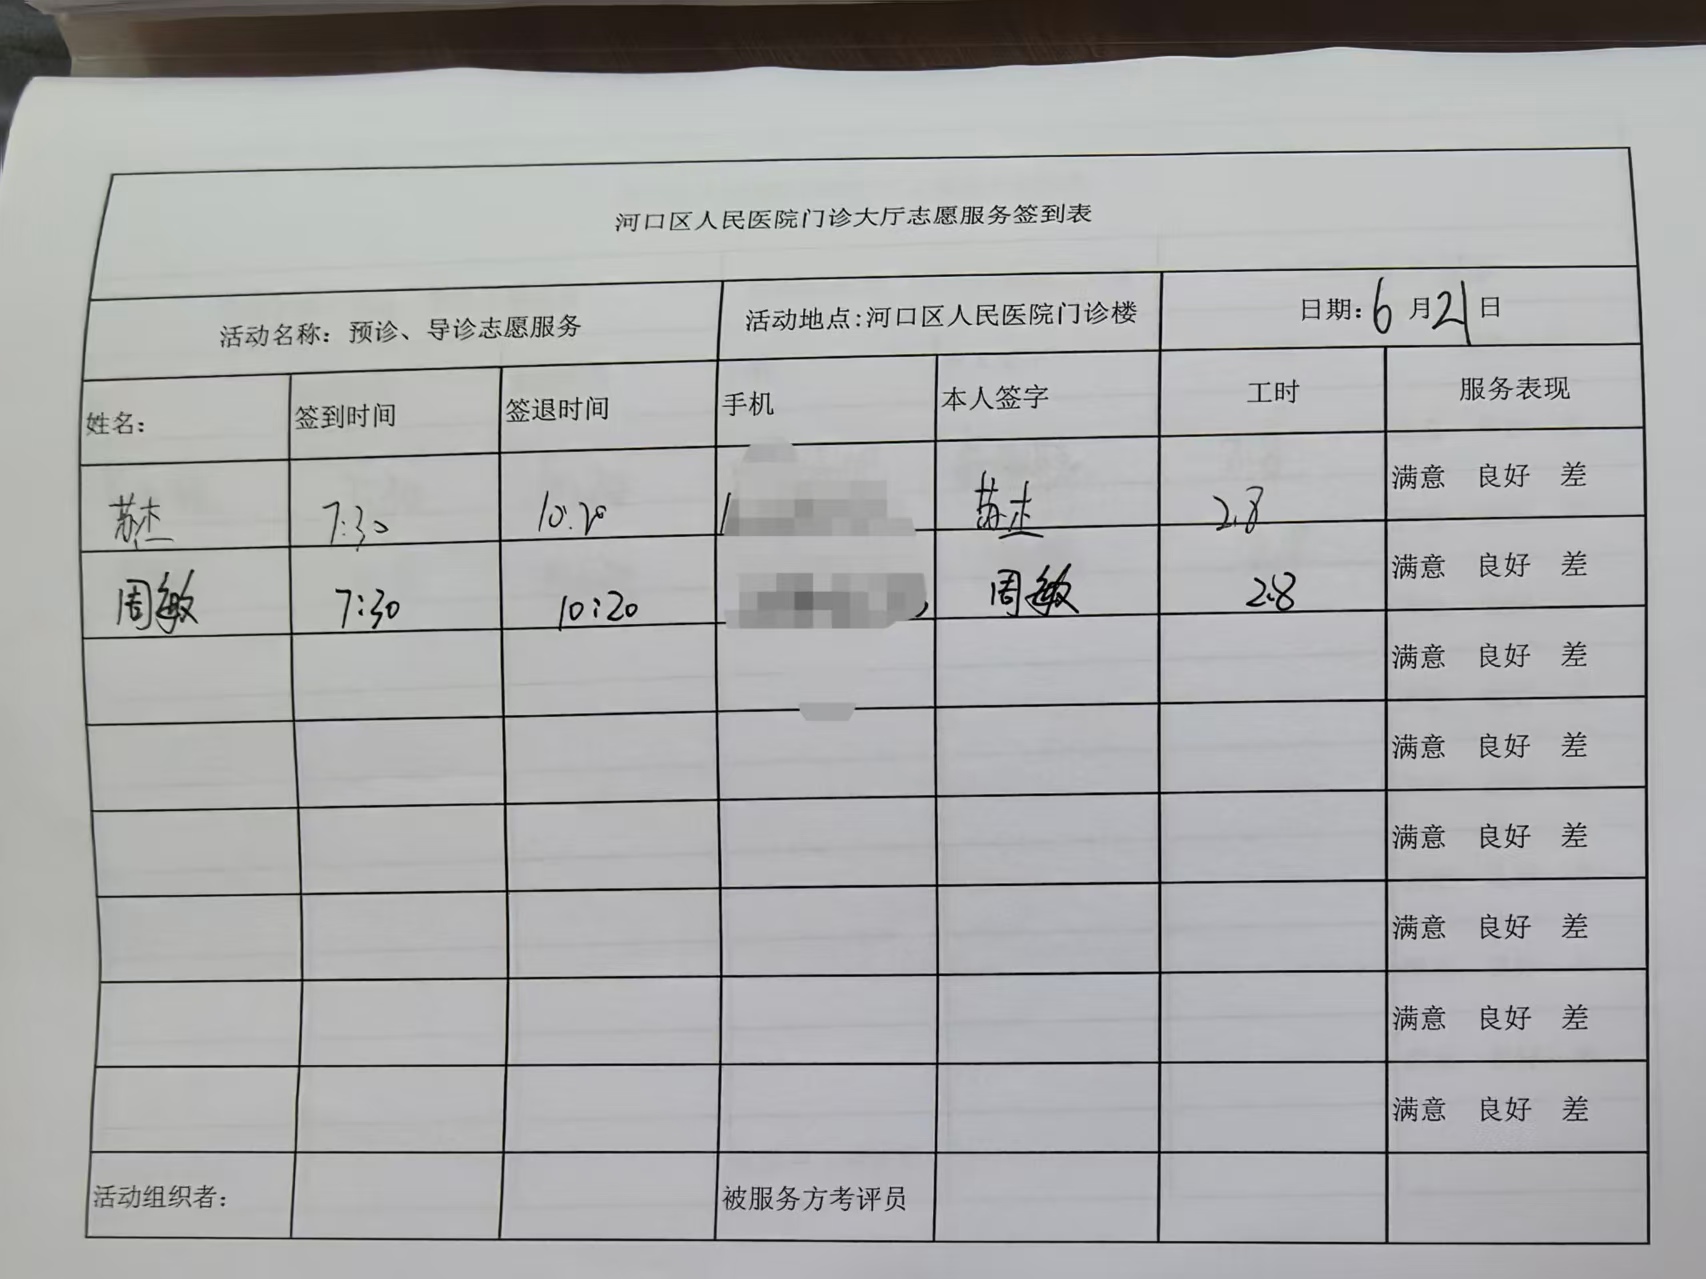 河口区人民医院门诊大厅志愿服务签到表
活动名称：预诊、导诊志愿服务 活动地点:河口区人民医院门诊楼 日期:6月21日
姓名： 签到时间 签退时间 手机 本人签字 工时 服务表现
苏杰 7:30 10:20 1 苏杰 2.8 满意 良好 差
周敏 7:30 10:20 周敏 2.8 满意 良好 差
满意 良好 差
满意 良好 差
满意 良好 差
满意 良好 差
满意 良好 差
满意 良好 差
活动组织者： 被服务方考评员